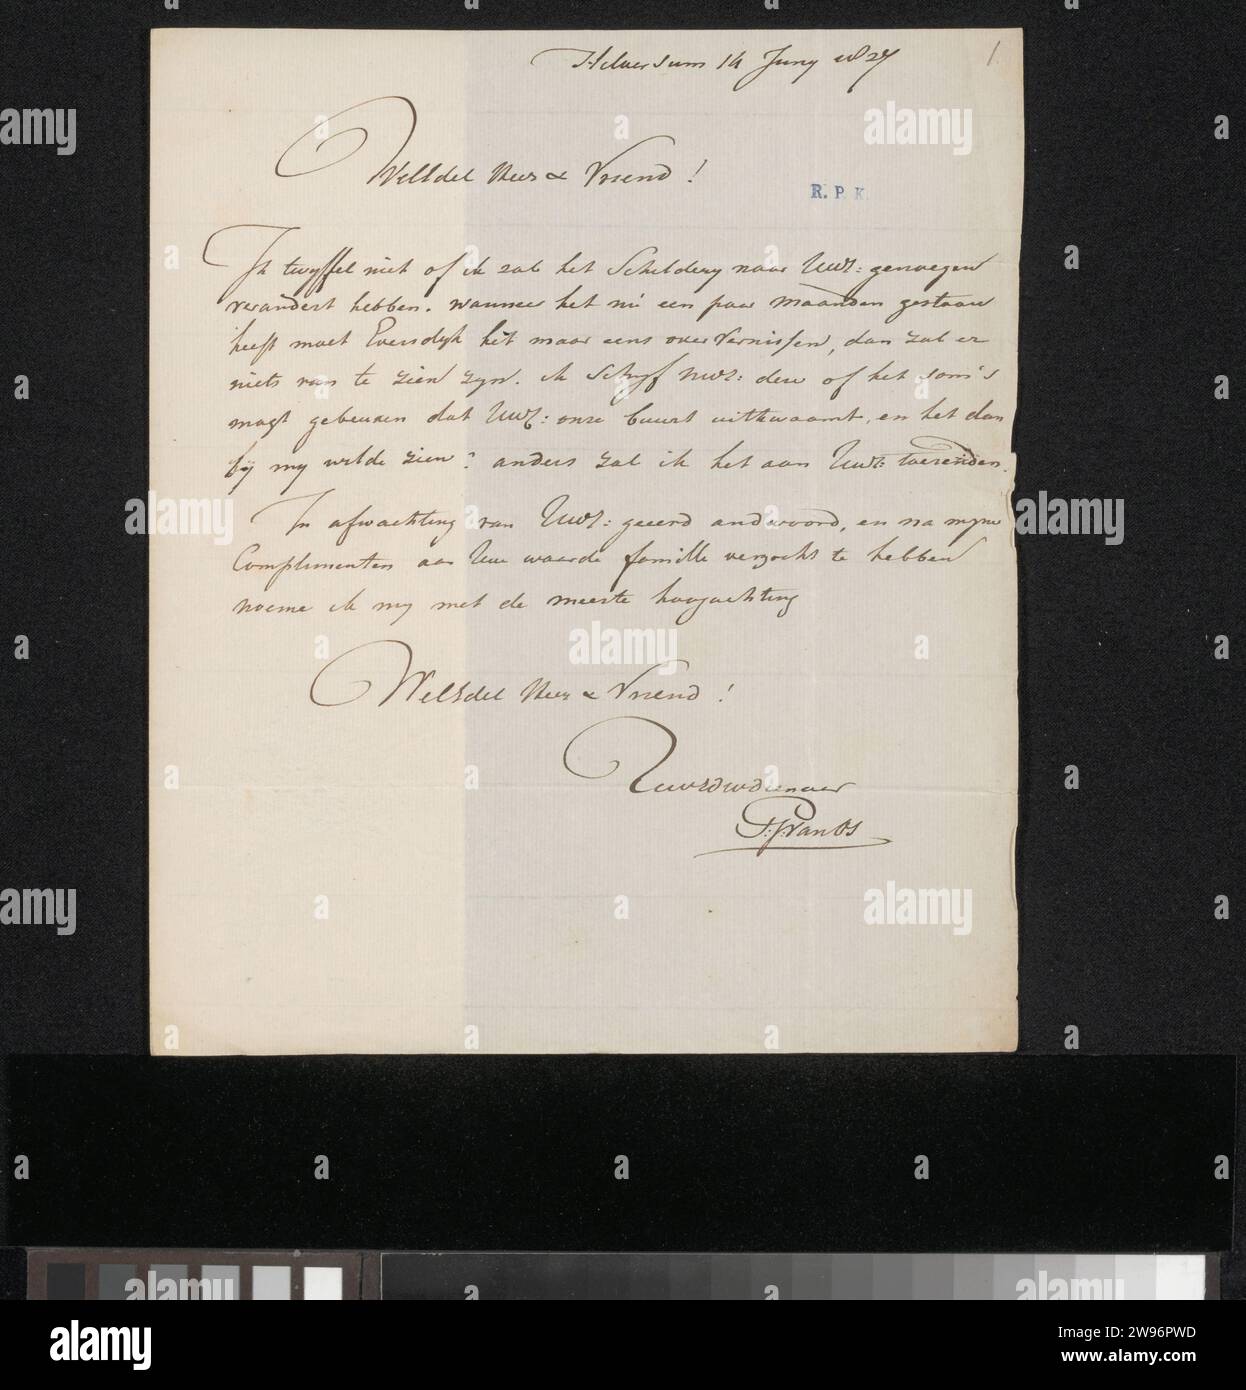 Hilversum 14 Juny 1827
1.
WelEdel Heer & Vriend!
R. P. K.
Ik twyffel niet of ik zal het Schildery naar UwE: genoegen
verandert hebben. wanneer het nu een paar maanden gestaan
heeft moet Eversdyk het maar eens oververnissen, dan zal er
niets van te zien zyn. ik Schryf UwE: dew of het som's
mogt gebeuren dat UwE: onze buurt uitkwaamt, en het dan
by my wilde zien? anders zal ik het aan UwE: toezenden.
In afwachting van UwE: geeerd andwoord, en na myne
Complimenten aan Uwe waarde famille verzocht te hebben
noeme ik my met de meeste hoogachting
WelEdel Heer & Vriend!
UwEdwdienaar
alamy
a
alamy
Image ID: 2W96PWD
www.alamy.com